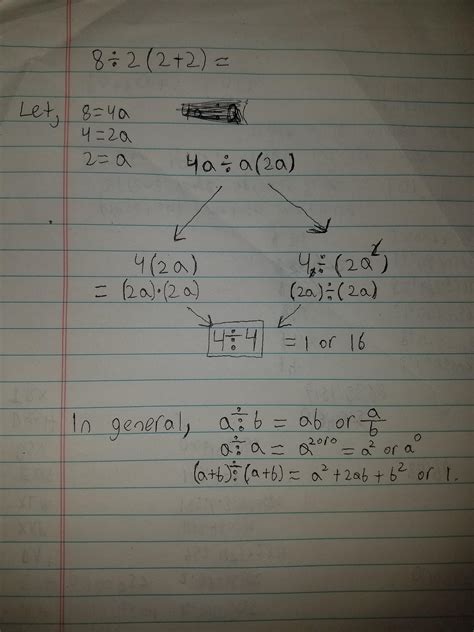 8 ÷ 2 (2+2) =
Let, 8 = 4a
4 = 2a
2 = a
4a ÷ a(2a)
4(2a) 4 ÷ (2a²)
= (2a)·(2a) (2a)÷(2a)
4 ÷ 4 = 1 or 16
In general, a ÷ b = ab or a/b
a ÷ a = a^(2 or 0) = a² or a⁰
(a+b)÷(a+b) = a² + 2ab + b² or 1.